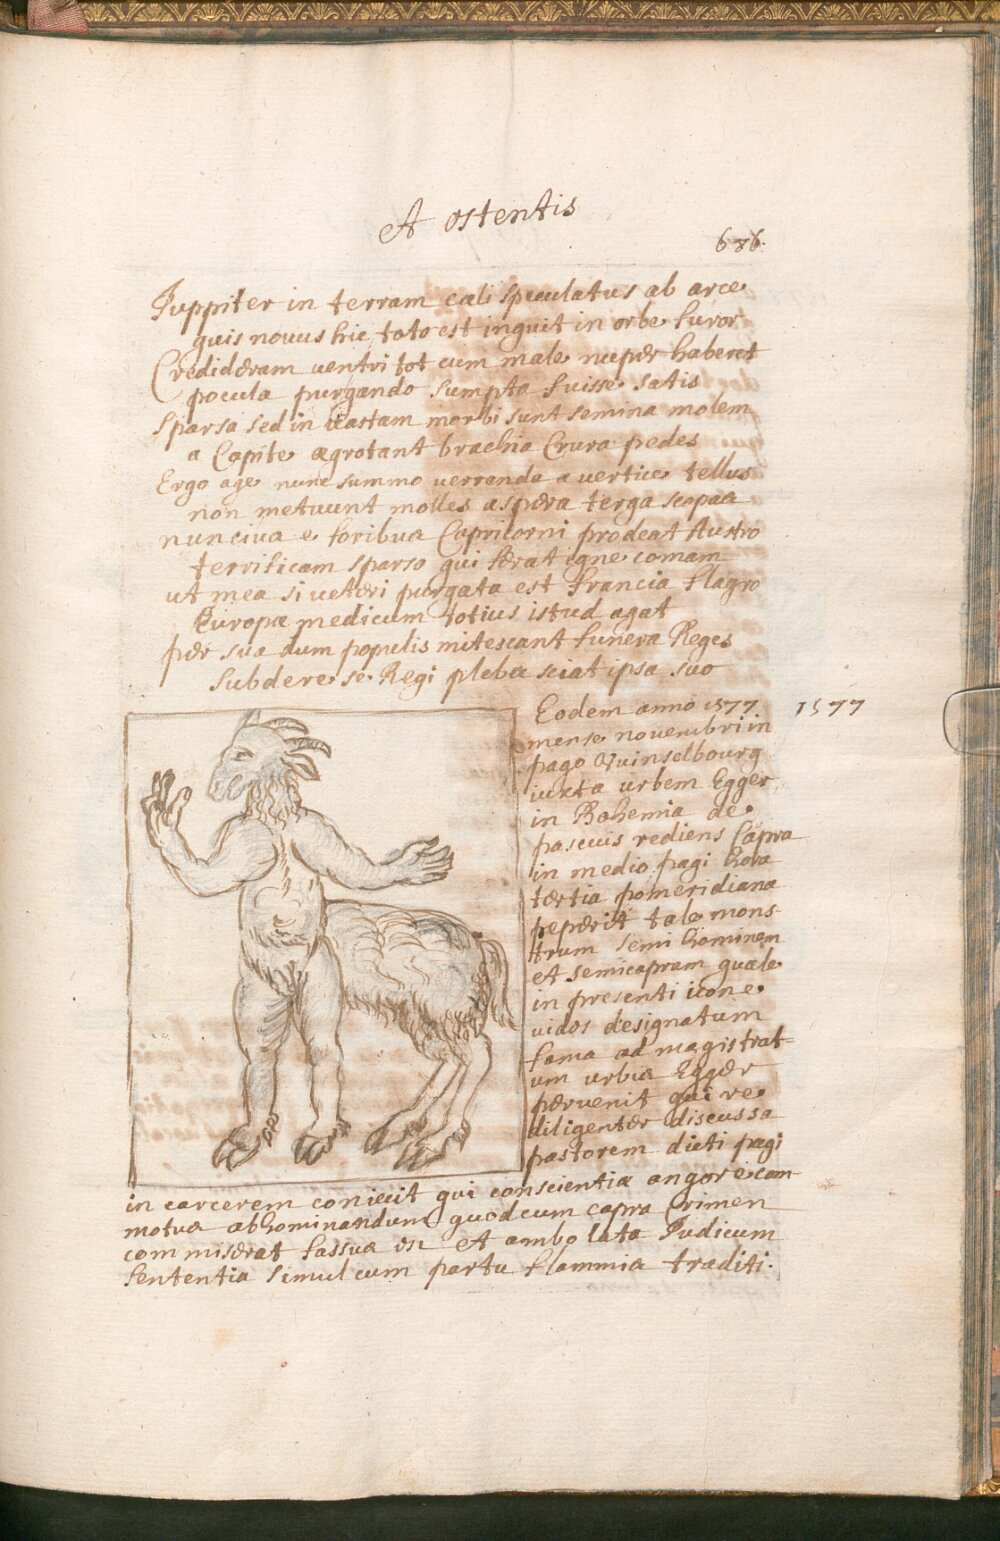 Et ostentis
686.
Iuppiter in terram cæli speculatus ab arce
quis novus hic toto est inquit in orbe furor
Credideram ventri tot cum male nuper haberet
pocula purgando sumpta fuisse satis
Sparsa sed in vastam morbi sunt semina molem
a Capite ægrotant brachia Crura pedes
Ergo age nunc summo verrenda a vertice tellus
non metuunt molles aspera terga scopas
nuncius e foribus Capricorni prodeat Austro
terrificam sparso qui ferat igne comam
ut mea si veteri purgata est Francia flagro
Europæ medicum totius istud agat
per sua dum populis mitescant funera Reges
subdere se Regi plebs sciat ipsa suo
Eodem anno 1577
1577
mense novembri in
pago Quinselbourg
iuxta urbem Egger
in Bohemia de
pascuis rediens Capra
in medio pagi hora
tertia pomeridiana
peperit tale mons-
trum semi hominem
et semicapram quale
in presenti icone
vides designatum
fama ad magistrat=
um urbis Egger
pervenit qui re
diligenter discussa
pastorem dicti pagi
in carcerem coniecit qui conscientiæ angore com-
motus abhominandum quod cum capra Crimen
commiserat fassus est Et ambo lata Iudicum
sententia simul cum partu flammis traditi.